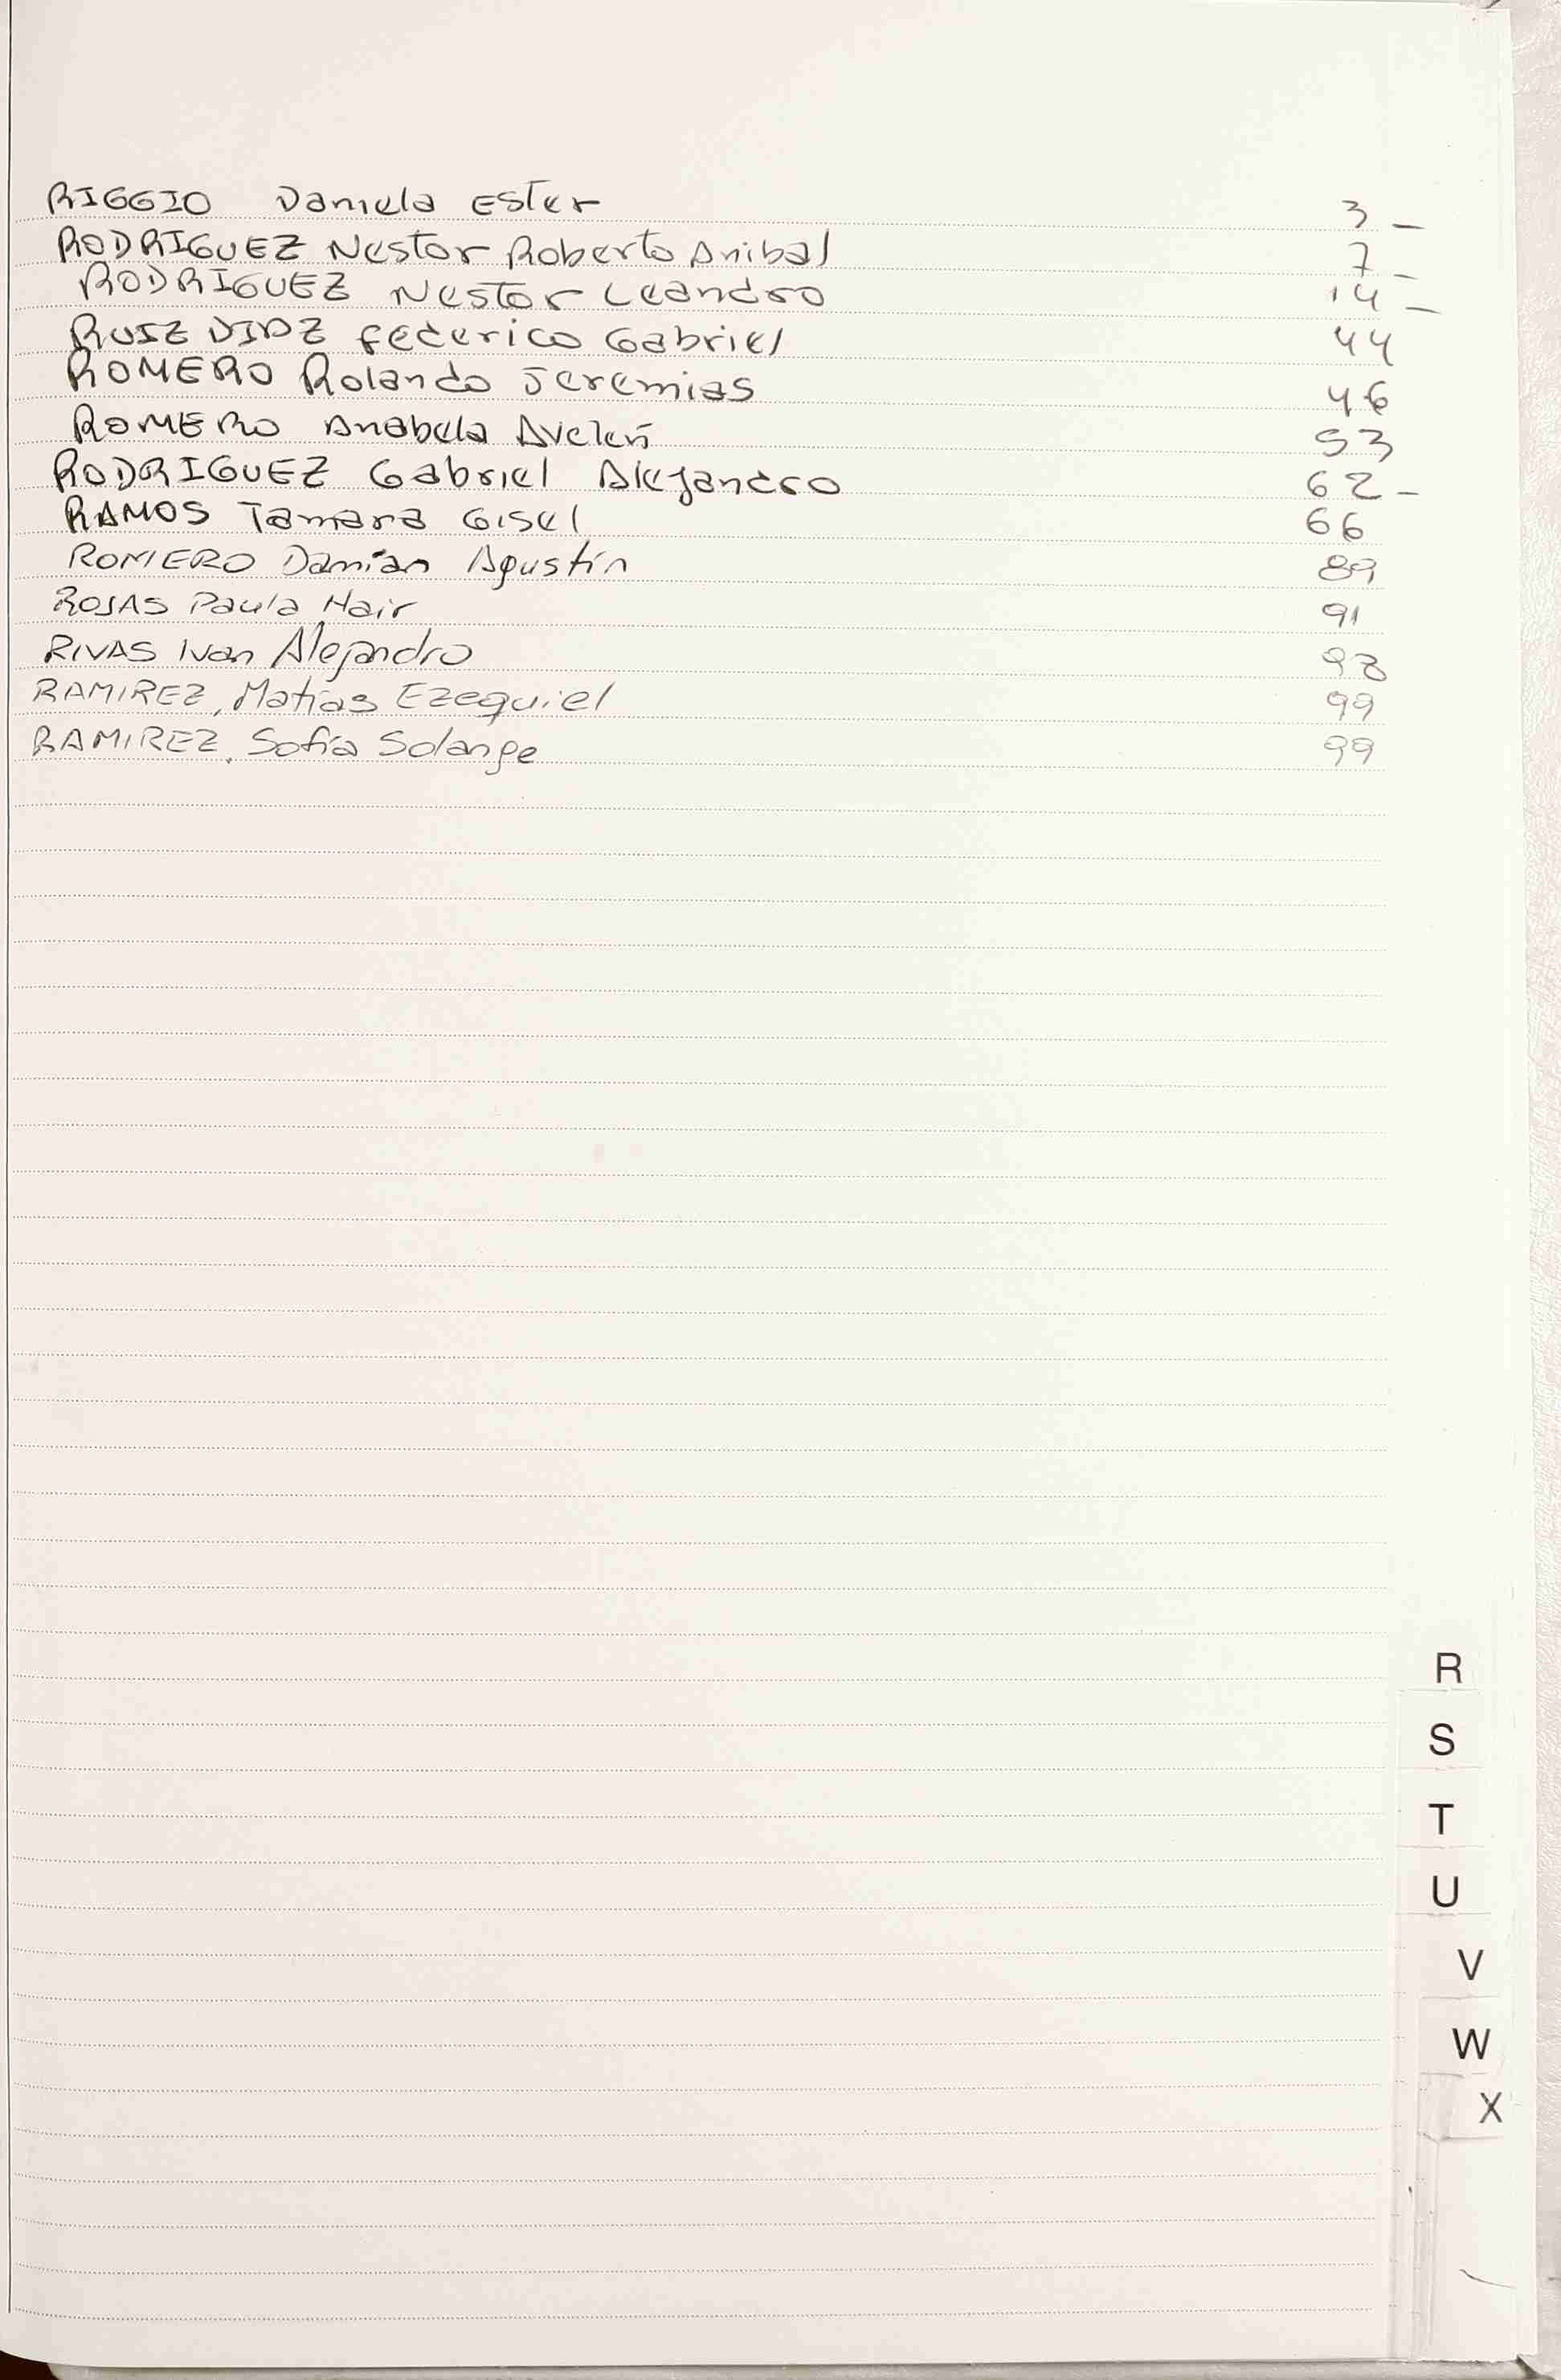 RIGGIO Daniela Ester 3 -
RODRIGUEZ Nestor Roberto Anibal 7 -
RODRIGUEZ Nestor Leandro 14 -
RUIZ DIAZ Federico Gabriel 44
ROMERO Rolando Jeremias 46
ROMERO Anabela Avelen 53
RODRIGUEZ Gabriel Alejandro 62 -
RAMOS Tamara Gisel 66
ROMERO Damián Agustín 89
ROJAS Paula Nair 91
RIVAS Ivan Alejandro 98
RAMIREZ, Matías Ezequiel 99
RAMIREZ, Sofía Solange 99
R
S
T
U
V
W
X